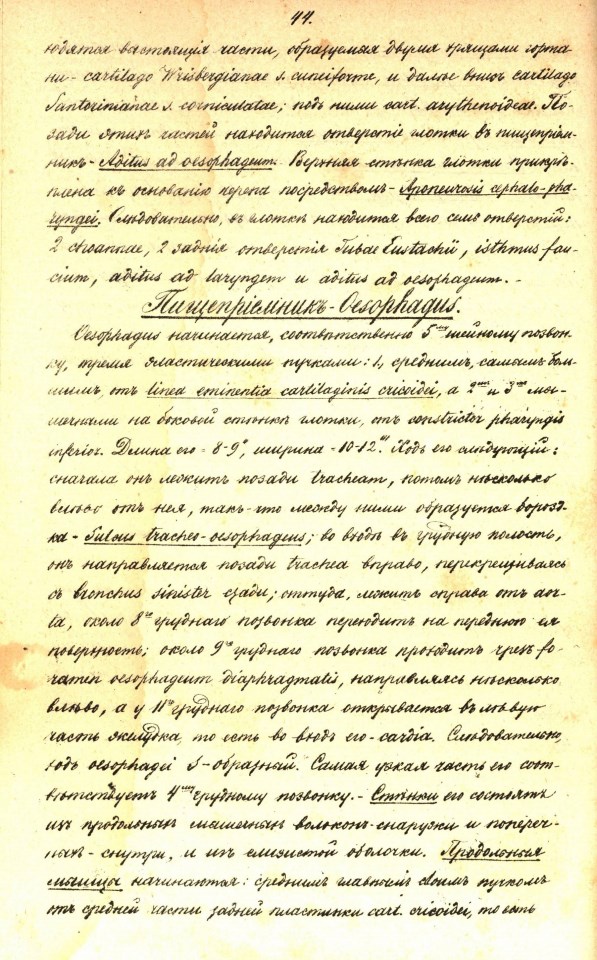 44.
ходятся выстоящія части, образуемыя двумя хрящами горта-
ни - cartilago Wrisbergianae s. cuneiforme, и далѣе внизъ cartilago
Santorinianae s. corniculatae; подъ ними cart. arythenoideae. По-
зади этихъ частей находится отверстіе глотки въ пищепріем-
никъ - Aditus ad oesophageum. Верхняя стѣнка глотки прикрѣ-
плена къ основанію черепа посредствомъ - Aponeurosis cephalo-pha-
ryngei. Слѣдовательно, въ глоткѣ находится всего семь отверстій:
2 choannae, 2 заднія отверстія Tubae Eustachii, isthmus fau-
cium, aditus ad laryngem и aditus ad oesophageum. -
Пищепріемникъ - Oesophagus.
Oesophagus начинается, соотвѣтственно 5му шейному позвон-
ку, тремя эластическими пучками: 1, среднимъ, самымъ боль-
шимъ, отъ linea eminentia cartilaginis cricoidei, а 2мя и 3мя мы-
шечными на боковой стѣнкѣ глотки, отъ constrictor pharyngis
inferior. Длина его = 8-9", ширина = 10-12'". Ходъ его слѣдующій:
сначала онъ лежитъ позади tracheam, потомъ нѣсколько
влѣво отъ нея, такъ-что между ними образуется борозд-
ка - Sulcus tracheo-oesophageus; во входѣ въ грудную полость,
онъ направляется позади trachea вправо, перекрещиваясь
съ bronchus sinister сзади; оттуда, лежитъ справа отъ aor-
ta, около 8го груднаго позвонка переходитъ на переднюю ея
поверхность; около 9го груднаго позвонка проходитъ чрезъ fo-
ramen oesophageum diaphragmatis, направляясь нѣсколько
влѣво, а у 11го груднаго позвонка открывается въ лѣвую
часть желудка, то есть во входъ его - cardia. Слѣдовательно,
ходъ oesophagei S-образный. Самая узкая часть его соот-
вѣтствуетъ 4му грудному позвонку. - Стѣнки его состоятъ
изъ продольныхъ мышечныхъ волоконъ - снаружи и попереч-
ныхъ - снутри, и изъ слизистой оболочки. Продольныя
мышцы начинаются: среднимъ главнымъ своимъ пучкомъ
отъ средней части задней пластинки cart. cricoidei, то есть